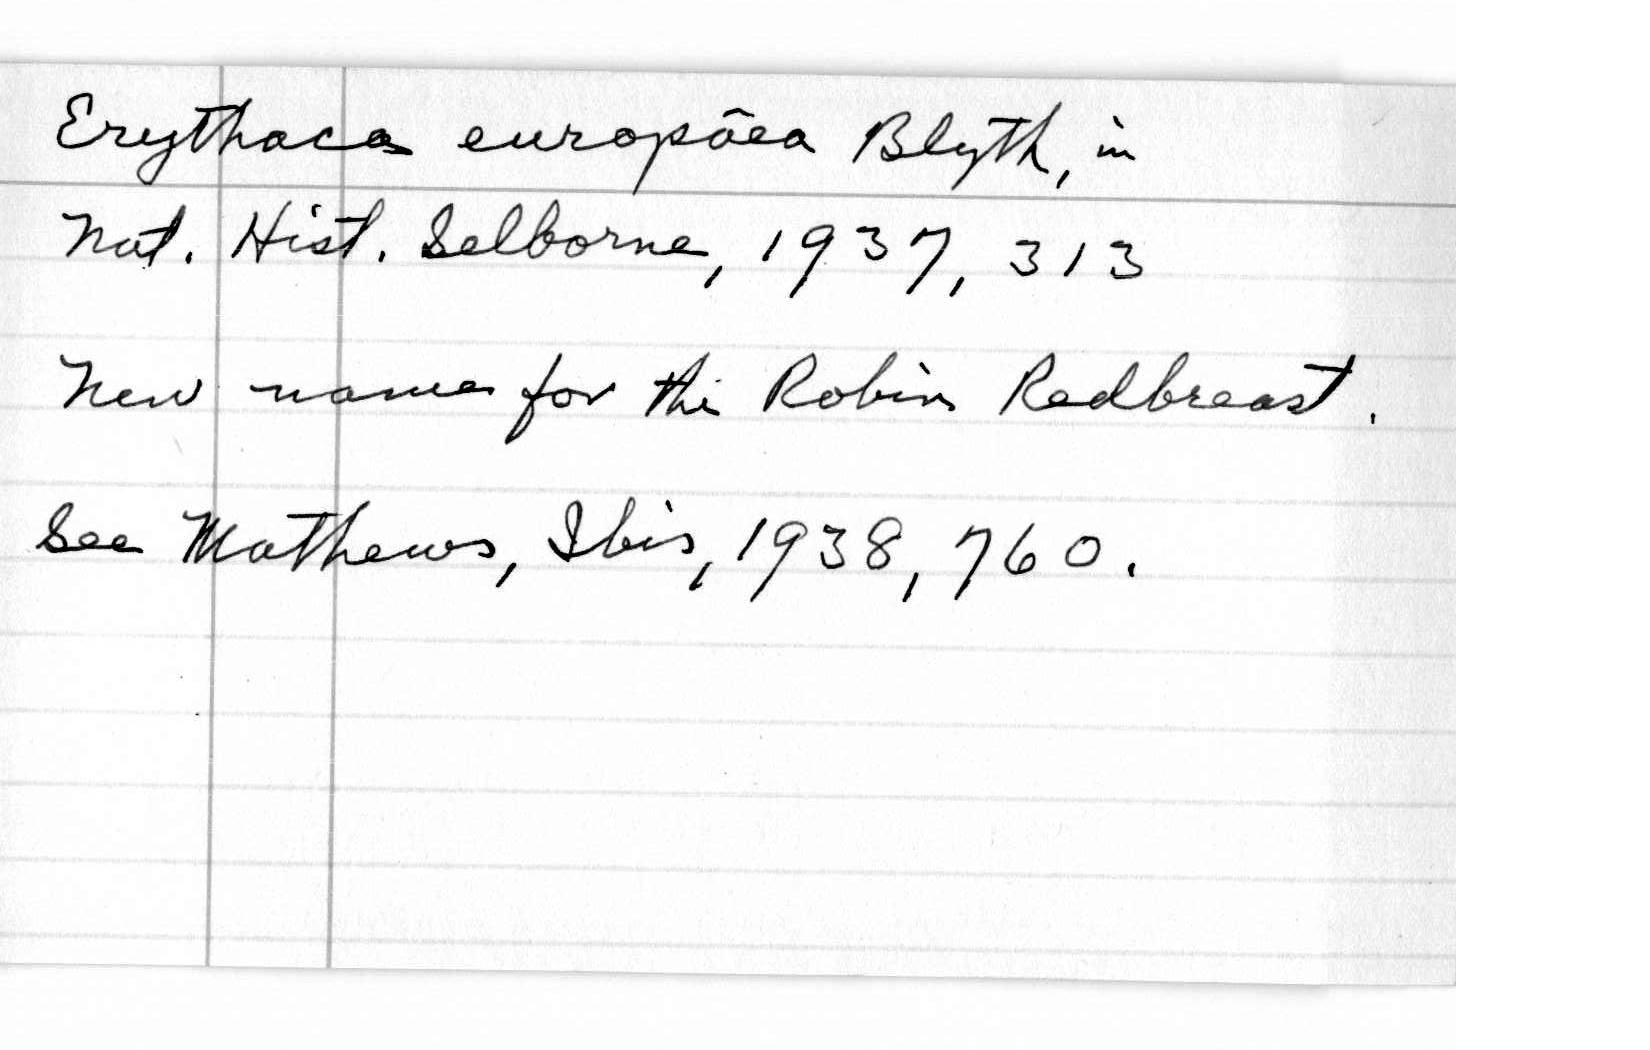 Erythaca europâea Blyth, in
Nat. Hist. Selborne, 1937, 313
New name for the Robin Redbreast.
See Mathews, Ibis, 1938, 760.